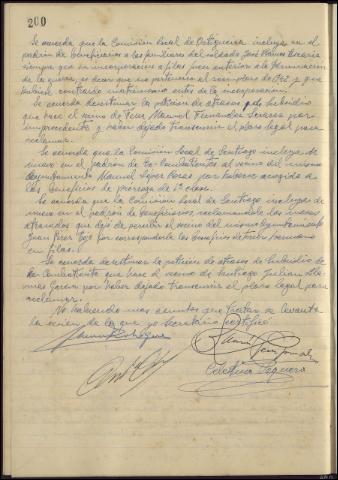 200
Se acuerda que la Comisión local de Ortigueira incluya en el
padrón de beneficiarios a los familiares del soldado José
siempre que su incorporación a filas fuese anterior a la terminación
de la guerra, es decir que no pertenezca al reemplazo de y que
hubiese contraido matrimonio antes de la incorporación.
Se acuerda desestimar la petición de atrasos de Subsidio
que hace el vecino de Manuel Fernández por
improcedente y haber dejado transcurrir el plazo legal para
reclamar.
Se acuerda que la Comisión local de Santiago incluya de
nuevo en el padrón de Ex-Combatientes al vecino del mismo
Ayuntamiento Manuel López Rosas por haberse acogido a
los beneficios de prórroga de 1ª clase.
Se acuerda que la Comisión local de Santiago incluya de
nuevo en el padrón de beneficiarios, reclamandole los meses
atrasados que dejó de percibir el vecino del mismo Ayuntamiento
Juan Pérez por corresponderle los beneficios de hermano
en filas.
Se acuerda desestimar la petición de atrasos de Subsidio de
Ex-Combatiente que hace el vecino de Santiago Julian
García por haber dejado transcurrir el plazo legal para
reclamar.
No habiendo mas asuntos que tratar se levanta
la sesión de la que yo Secretario certifico.
Celestino Peguero